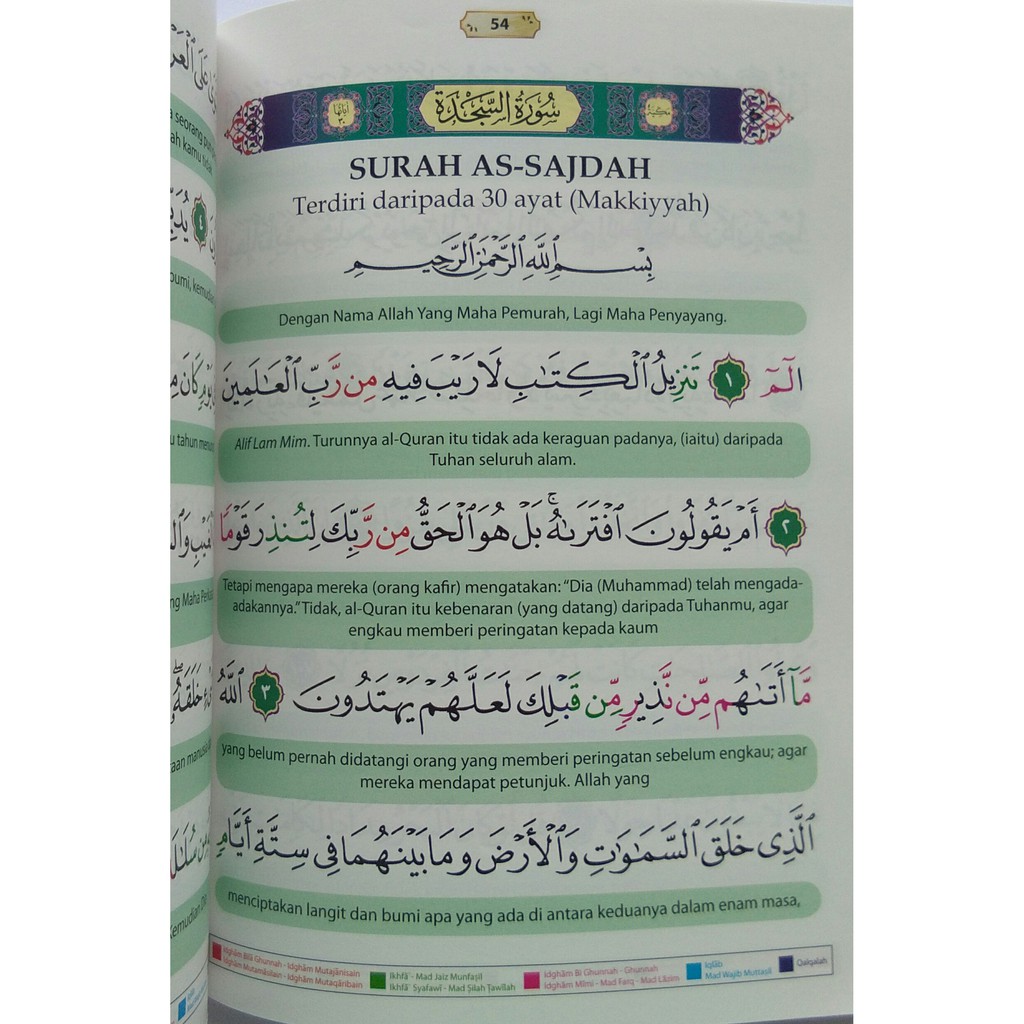 54
سُورَةُ السَّجْدَةِ
SURAH AS-SAJDAH
Terdiri daripada 30 ayat (Makkiyyah)
بِسْمِ ٱللَّهِ ٱلرَّحْمَٰنِ ٱلرَّحِيمِ
Dengan Nama Allah Yang Maha Pemurah, Lagi Maha Penyayang.
الٓمٓ ١ تَنزِيلُ ٱلْكِتَٰبِ لَا رَيْبَ فِيهِ مِن رَّبِّ ٱلْعَٰلَمِينَ
Alif Lam Mim. Turunnya al-Quran itu tidak ada keraguan padanya, (iaitu) daripada
Tuhan seluruh alam.
٢ أَمْ يَقُولُونَ ٱفْتَرَىٰهُ ۚ بَلْ هُوَ ٱلْحَقُّ مِن رَّبِّكَ لِتُنذِرَ قَوْمًا
Tetapi mengapa mereka (orang kafir) mengatakan: “Dia (Muhammad) telah mengada-
adakannya.” Tidak, al-Quran itu kebenaran (yang datang) daripada Tuhanmu, agar
engkau memberi peringatan kepada kaum
مَّآ أَتَىٰهُم مِّن نَّذِيرٍ مِّن قَبْلِكَ لَعَلَّهُمْ يَهْتَدُونَ ٣ ٱللَّهُ
yang belum pernah didatangi orang yang memberi peringatan sebelum engkau; agar
mereka mendapat petunjuk. Allah yang
ٱلَّذِى خَلَقَ ٱلسَّمَٰوَٰتِ وَٱلْأَرْضَ وَمَا بَيْنَهُمَا فِى سِتَّةِ أَيَّامٍ
menciptakan langit dan bumi apa yang ada di antara keduanya dalam enam masa,
Idghām Bilā Ghunnah - Idghām Mutajānisain
Idghām Mutamāṡilain - Idghām Mutaqāribain
Ikhfā' - Mad Jaiz Munfaṣil
Ikhfā' Syafawī - Mad Ṣilah Ṭawīlah
Idghām Bi Ghunnah - Ghunnah
Idghām Mīmi - Mad Farq - Mad Lāzim
Iqlāb
Mad Wajib Muttaṣil
Qalqalah